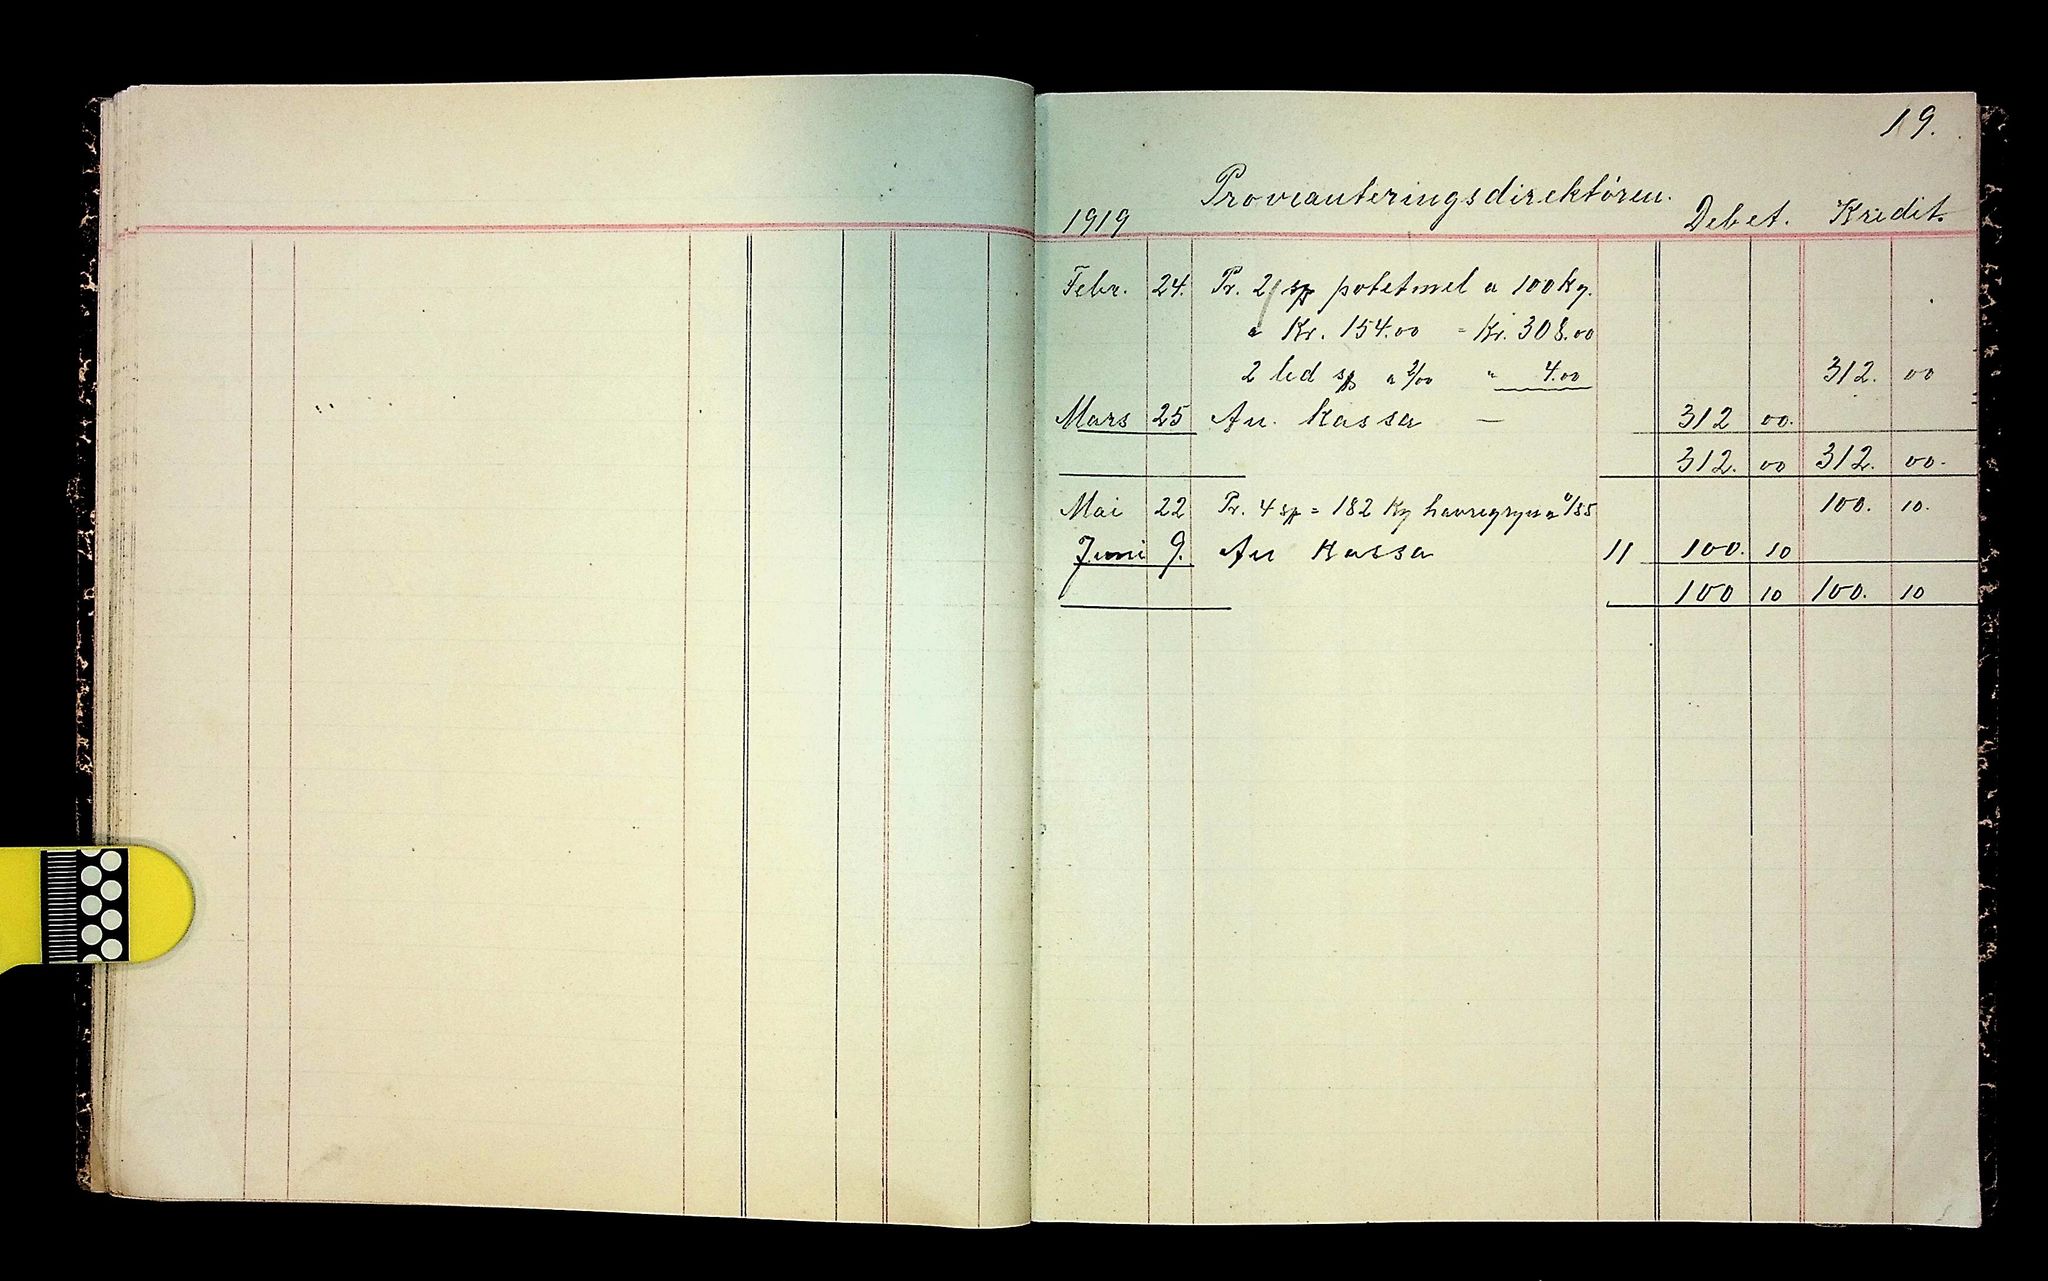 19.
Proviauteringsdirektören.
1919 Debet. Kredit.
Febr. 24. Pr. 2 sp potetmel a 100 Kg.
a Kr. 154.00 = Kr. 308.00
2 led sp a 2/00 " 4.00 312. 00
Mars 25 An. Kassa — 312 00.
312. 00 312. 00.
Mai 22 Pr. 4 sp = 182 Kg havregryn a 0/55 100. 10.
Juni 9. An Kassa 11 100. 10
100 10 100. 10